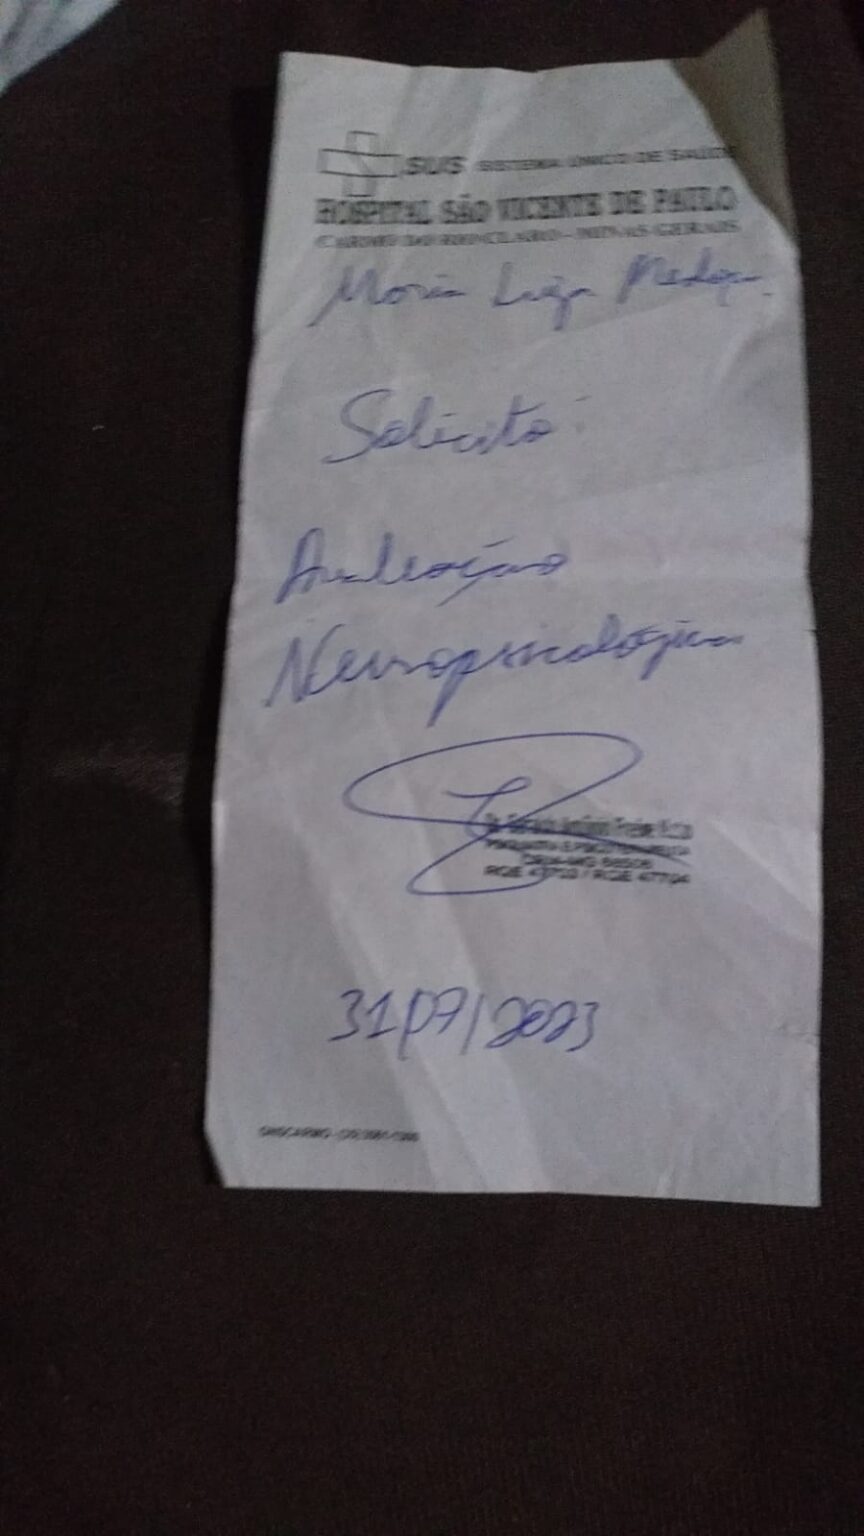 SUS SISTEMA ÚNICO DE SAÚDE
HOSPITAL SÃO VICENTE DE PAULO
CARMO DO RIO CLARO - MINAS GERAIS
Maria Luiza
Solicito:
Avaliação
Neuropsicológica
Dr. Antônio Freire
RQE / RQE 47704
31/07/2023